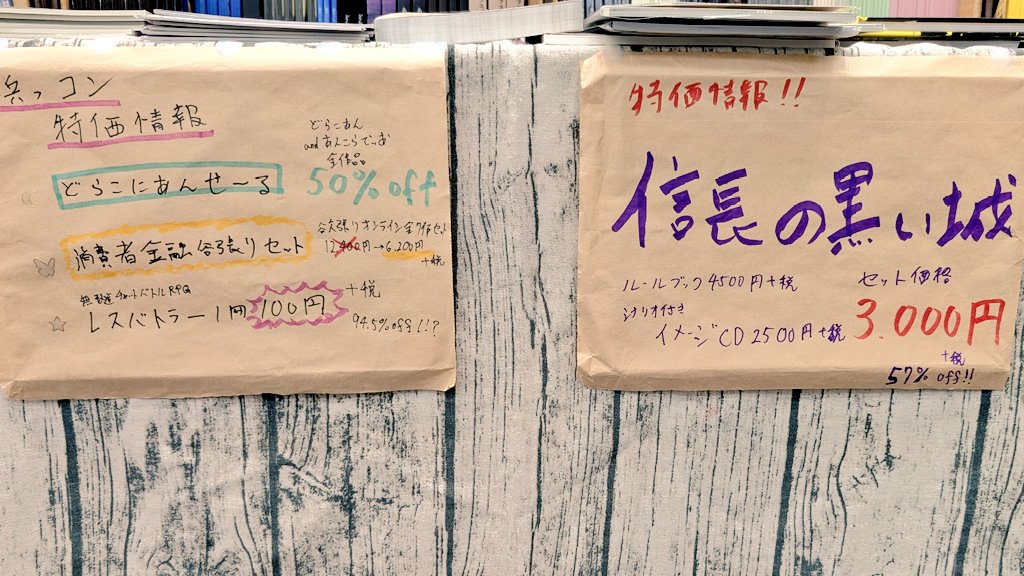 浜っコン
特価情報
どらこにあんせーる
どらこあん
and あんこらでぃお
全作品
50%off
消費者金融 谷引張りセット
オンライン全7作セット
12,400円→6,200円
+税
チャートバトルRPG
レスバトラー1円 100円
+税
94.5%off!!?
特価情報!!
信長の黒い城
ルールブック 4500円+税
シナリオ付き
イメージCD 2500円+税
セット価格
3.000円
+税
57% off!!